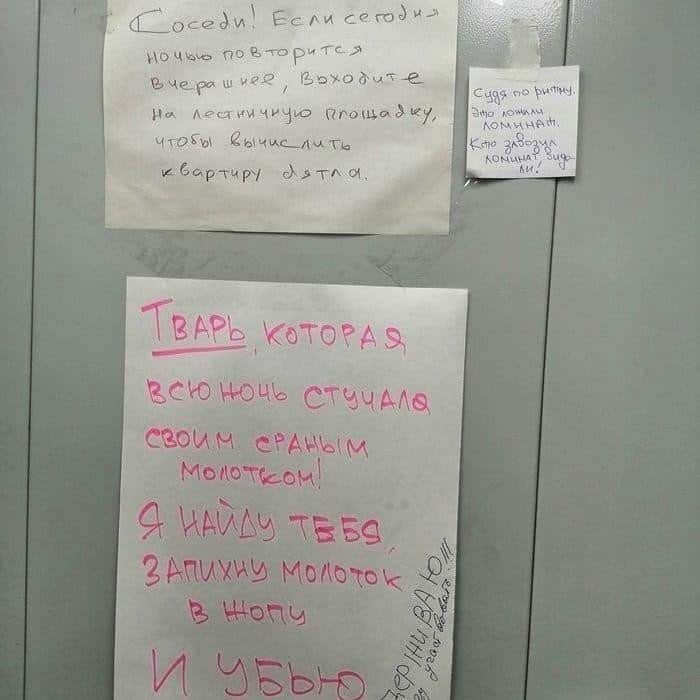 Соседи! Если сегодня
ночью повторится
вчерашнее, выходите
на лестничную площадку,
чтобы вычислить
квартиру дятла.
Судя по ритму.
Это ложали
ломинат.
Кто завозил
ломинат, вида-
ли!
Тварь, которая
всю ночь стучала
своим сраным
молотком!
Я найду тебя,
запихну молоток
в жопу
и убью
ерживаю